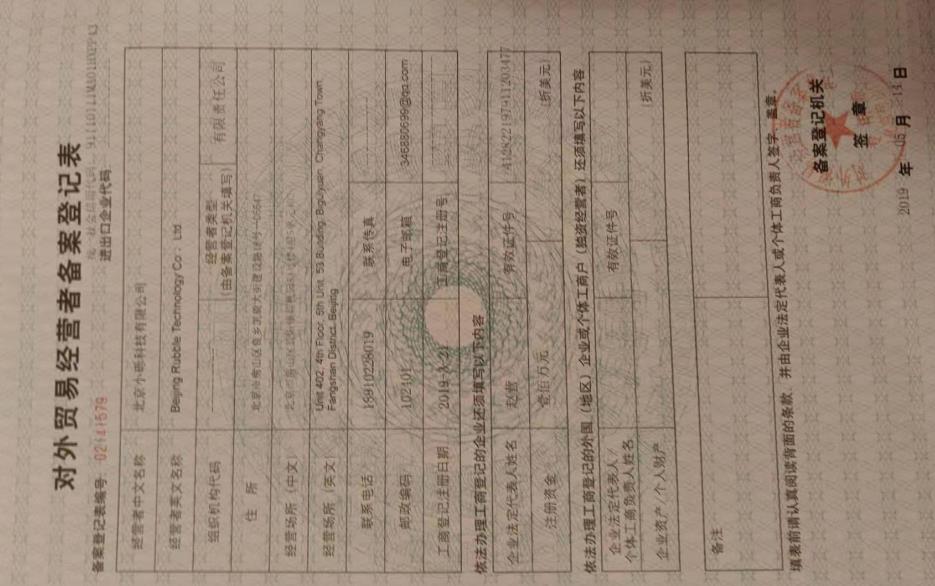 对外贸易经营者备案登记表
统一社会信用代码
备案登记表编号: 02141579 进出口企业代码
经营者中文名称 北京小砾科技有限公司
经营者英文名称 Beijing Rubble Technology Co., Ltd
组织机构代码 经营者类型 有限责任公司
(由备案登记机关填写)
住 所
经营场所(中文)
经营场所(英文) Unit 402, 4th Floor, 5th Unit, 53 Building, Biguiyuan, Changyang Town,
Fangshan District, Beijing
联系电话 18910228019 联系传真
邮政编码 102401 电子邮箱 346880699@qq.com
工商登记注册日期 工商登记注册号
依法办理工商登记的企业还须填写以下内容
企业法定代表人姓名 赵营 有效证件号
注册资金 壹佰万元 (折美元)
依法办理工商登记的外国(地区)企业或个体工商户(独资经营者)还须填写以下内容
企业法定代表人/
个体工商负责人姓名 有效证件号
企业资产/个人财产 (折美元)
备注
填表前请认真阅读背面的条款,并由企业法定代表人或个体工商负责人签字、盖章。
备案登记机关
签 章
2019 年 05 月 14 日